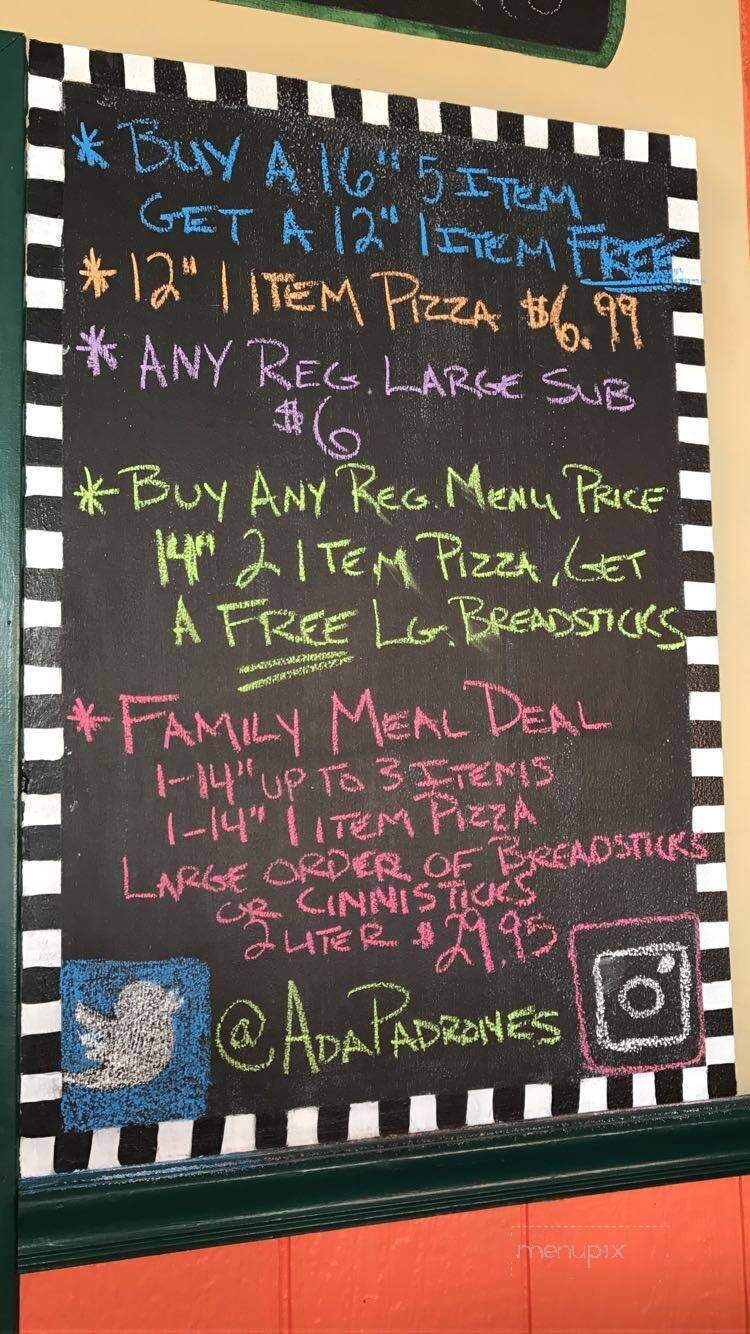 * BUY A 16" 5 ITEM
GET A 12" 1 ITEM FREE
* 12" 1 ITEM PIZZA $6.99
* ANY REG. LARGE SUB
$6
* BUY ANY REG. MENU PRICE
14" 2 ITEM PIZZA, GET
A FREE LG. BREADSTICKS
* FAMILY MEAL DEAL
1-14" UP TO 3 ITEMS
1-14" 1 ITEM PIZZA
LARGE ORDER OF BREADSTICKS
OR CINNISTICKS
2 LITER $29.95
@ADAPADRONES
menupix